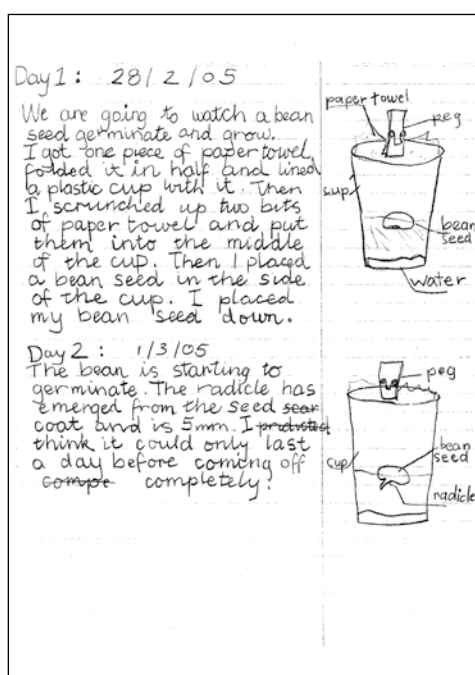 Day 1: 28/2/05
We are going to watch a bean
seed germinate and grow.
I got one piece of paper towel,
folded it in half and lined
a plastic cup with it. Then
I scrunched up two bits
of paper towel and put
them into the middle
of the cup. Then I placed
a bean seed in the side
of the cup. I placed
my bean seed down.
paper towel
peg
cup
bean
seed
water
Day 2: 1/3/05
The bean is starting to
germinate. The radicle has
emerged from the seed scar
coat and is 5mm. I pridicted
think it could only last
a day before coming off
compe completely!
peg
cup
bean
seed
radicle